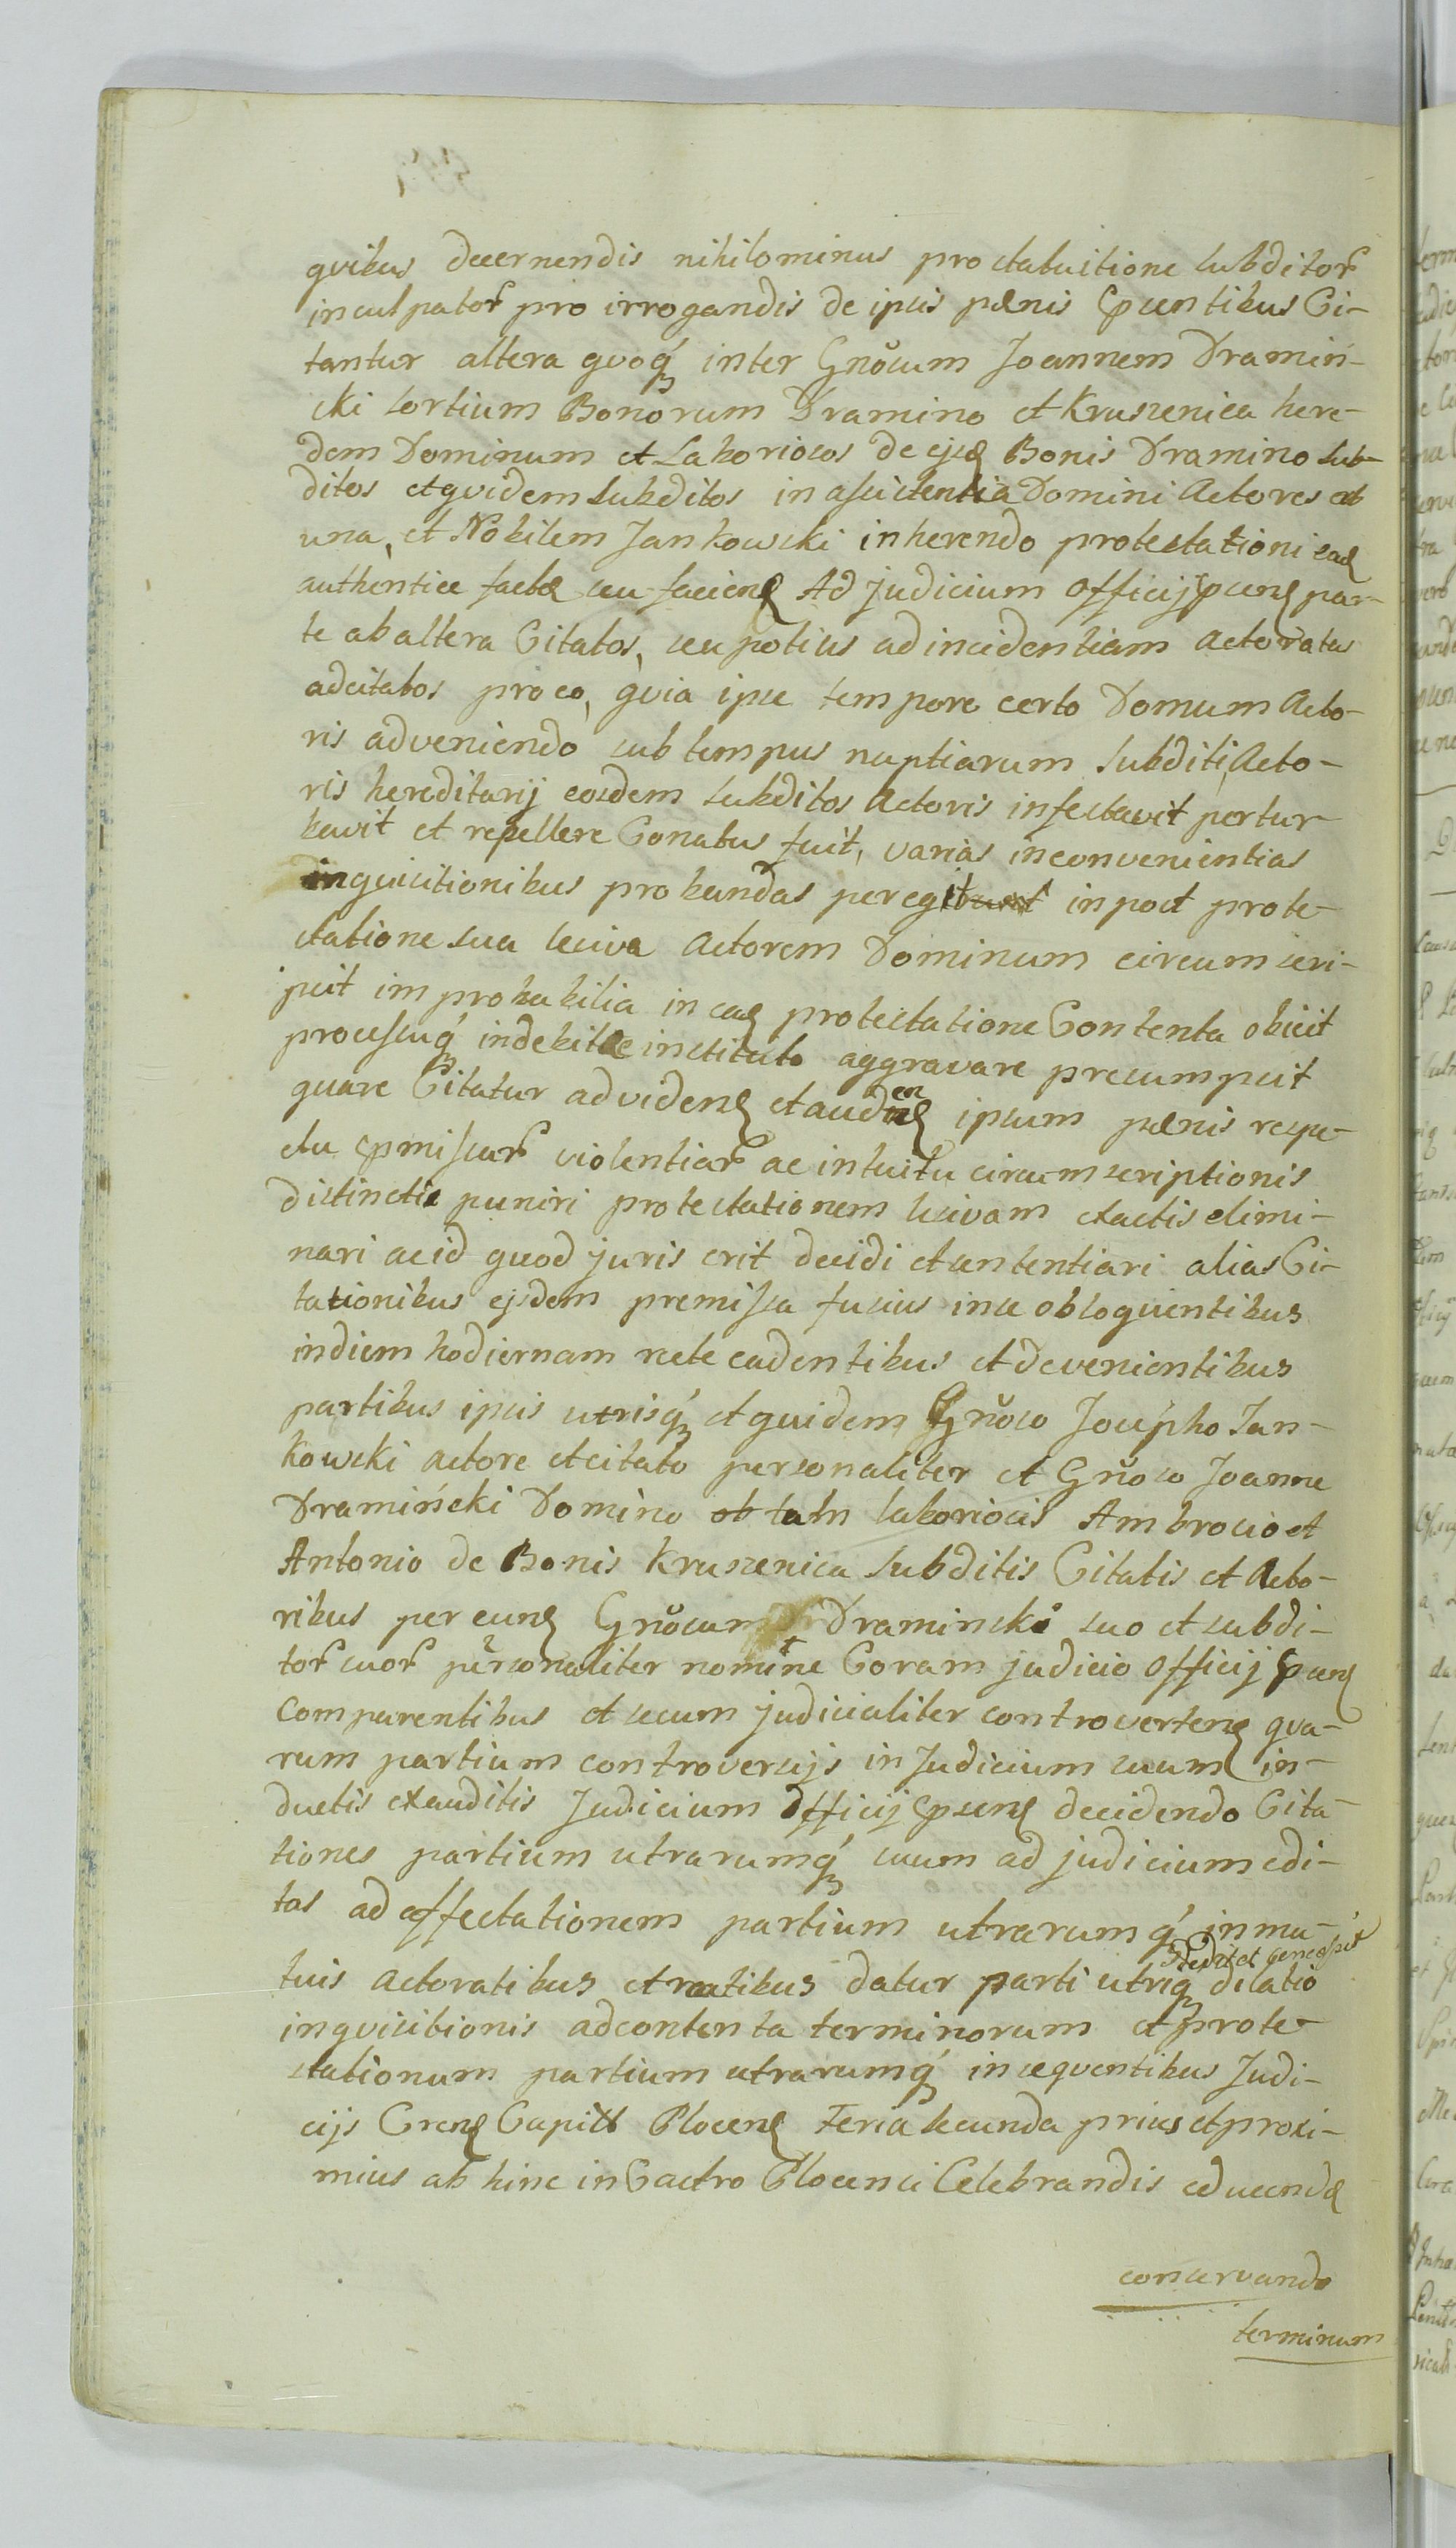 quibus decernendis nihilominus pro statuitione subditor̃
inculpator̃ pro irrogandis de ipsis pænis pñsentibus Ci-
tantur altera quoq́ꝫ inter Gnősum Joannem Dramiń-
ski sortium Bonorum Dramino et Kruszenica here-
dem Dominum et Laboriosos de ejsꝺ Bonis Dramino sub-
ditos et quidem subditos in assistentia Domini Actores ab
una, et Nobilem Jankowski inherendo protestationi eaꝺ
authentice factæ seu facienꝺ Ad judicium Officij pñsenꝭ par-
te ab altera Citatos, seu potius ad incidentiam actoratus
adcitatos pro eo, quia ipse tempore certo Domum Acto-
ris adveniendo sub tempus nuptiarum subditi Acto-
ris hereditarij eosdem subditos Actoris infestavit pertur-
bavit et repellere Conatus fuit, varias inconvenientias
inquisitionibus probandas peregit in post prote-
statione sua lesiva Actorem Dominum circumscri-
psit improbabilia in eaꝺ protestatione Contenta obiecit
processuq́ꝫ indebitæ instituto aggravare presumpsit
quare Citatur ad videnꝺ et audienꝺ ipsum pænis respe-
ctu pmissar̃ violentiar̃ ac intuitu circumscriptionis
distinctis puniri protestationem lesivam ex actis elimi-
nari ac id quod juris erit decidi et sententiari alias Ci-
tationibus ejsdem premissa fusius in se obloquentibus
in diem hodiernam recte cadentibus et devenientibus
partibus ipsis utrisq́ꝫ et quidem Gnőso Josepho Jan-
kowski actore et citato personaliter et Gnőso Joanne
Dramiński Domino ob tatn laboriosis Ambrosio et
Antonio de Bonis Kruszenica subditis Citatis et Acto-
ribus per eunꝺ Gnősum Draminski suo et subdi-
tor̃ suor̃ personaliter nomine Coram judicio Officij pñsenꝭ
Comparentibus et secum judicialiter controvertenꝭ qua-
rum partium controversijs in Judicium suum in-
ductis et auditis Judicium Officij pñsenꝭ decidendo Cita-
tiones partium utrarumq́ꝫ suum ad judicium edi-
tas ad affectationem partium utrarumq́ꝫ in mu-
tuis actoratibus et reatibus datur parti utriqꝫ dilatio
inquisitionis ad contenta terminorum et prote-
stationum partium utrarumq́ꝫ in sequentibus Judi-
cijs Crenꝭ Capitł Plocenꝭ Feria secunda prius et proxi-
mius ab hinc in Castro Plocensi Celebrandis educendæ
conservando
terminum